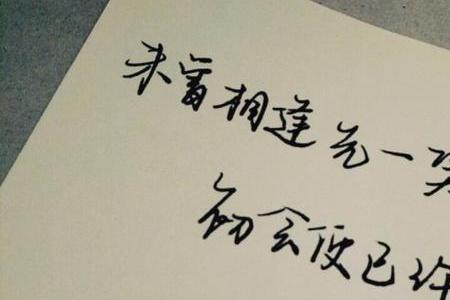 未曾相逢先一笑
初会便已许